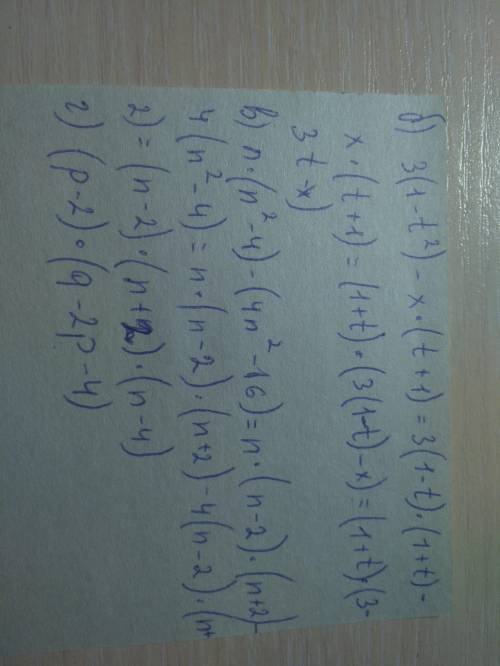 б) 3(1-t²) - x·(t+1) = 3(1-t)·(1+t) -
x·(t+1) = (1+t)·(3(1-t)-x) = (1+t)·(3-
3t-x)
в) n·(n²-4) - (4n²-16) = n·(n-2)·(n+2)-
4(n²-4) = n·(n-2)·(n+2) - 4(n-2)·(n+
2) = (n-2)·(n+2)·(n-4)
г) (p-2)·(q-2p-4)